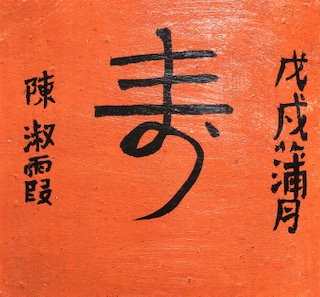 戊戌蒲月
寿
陳淑霞